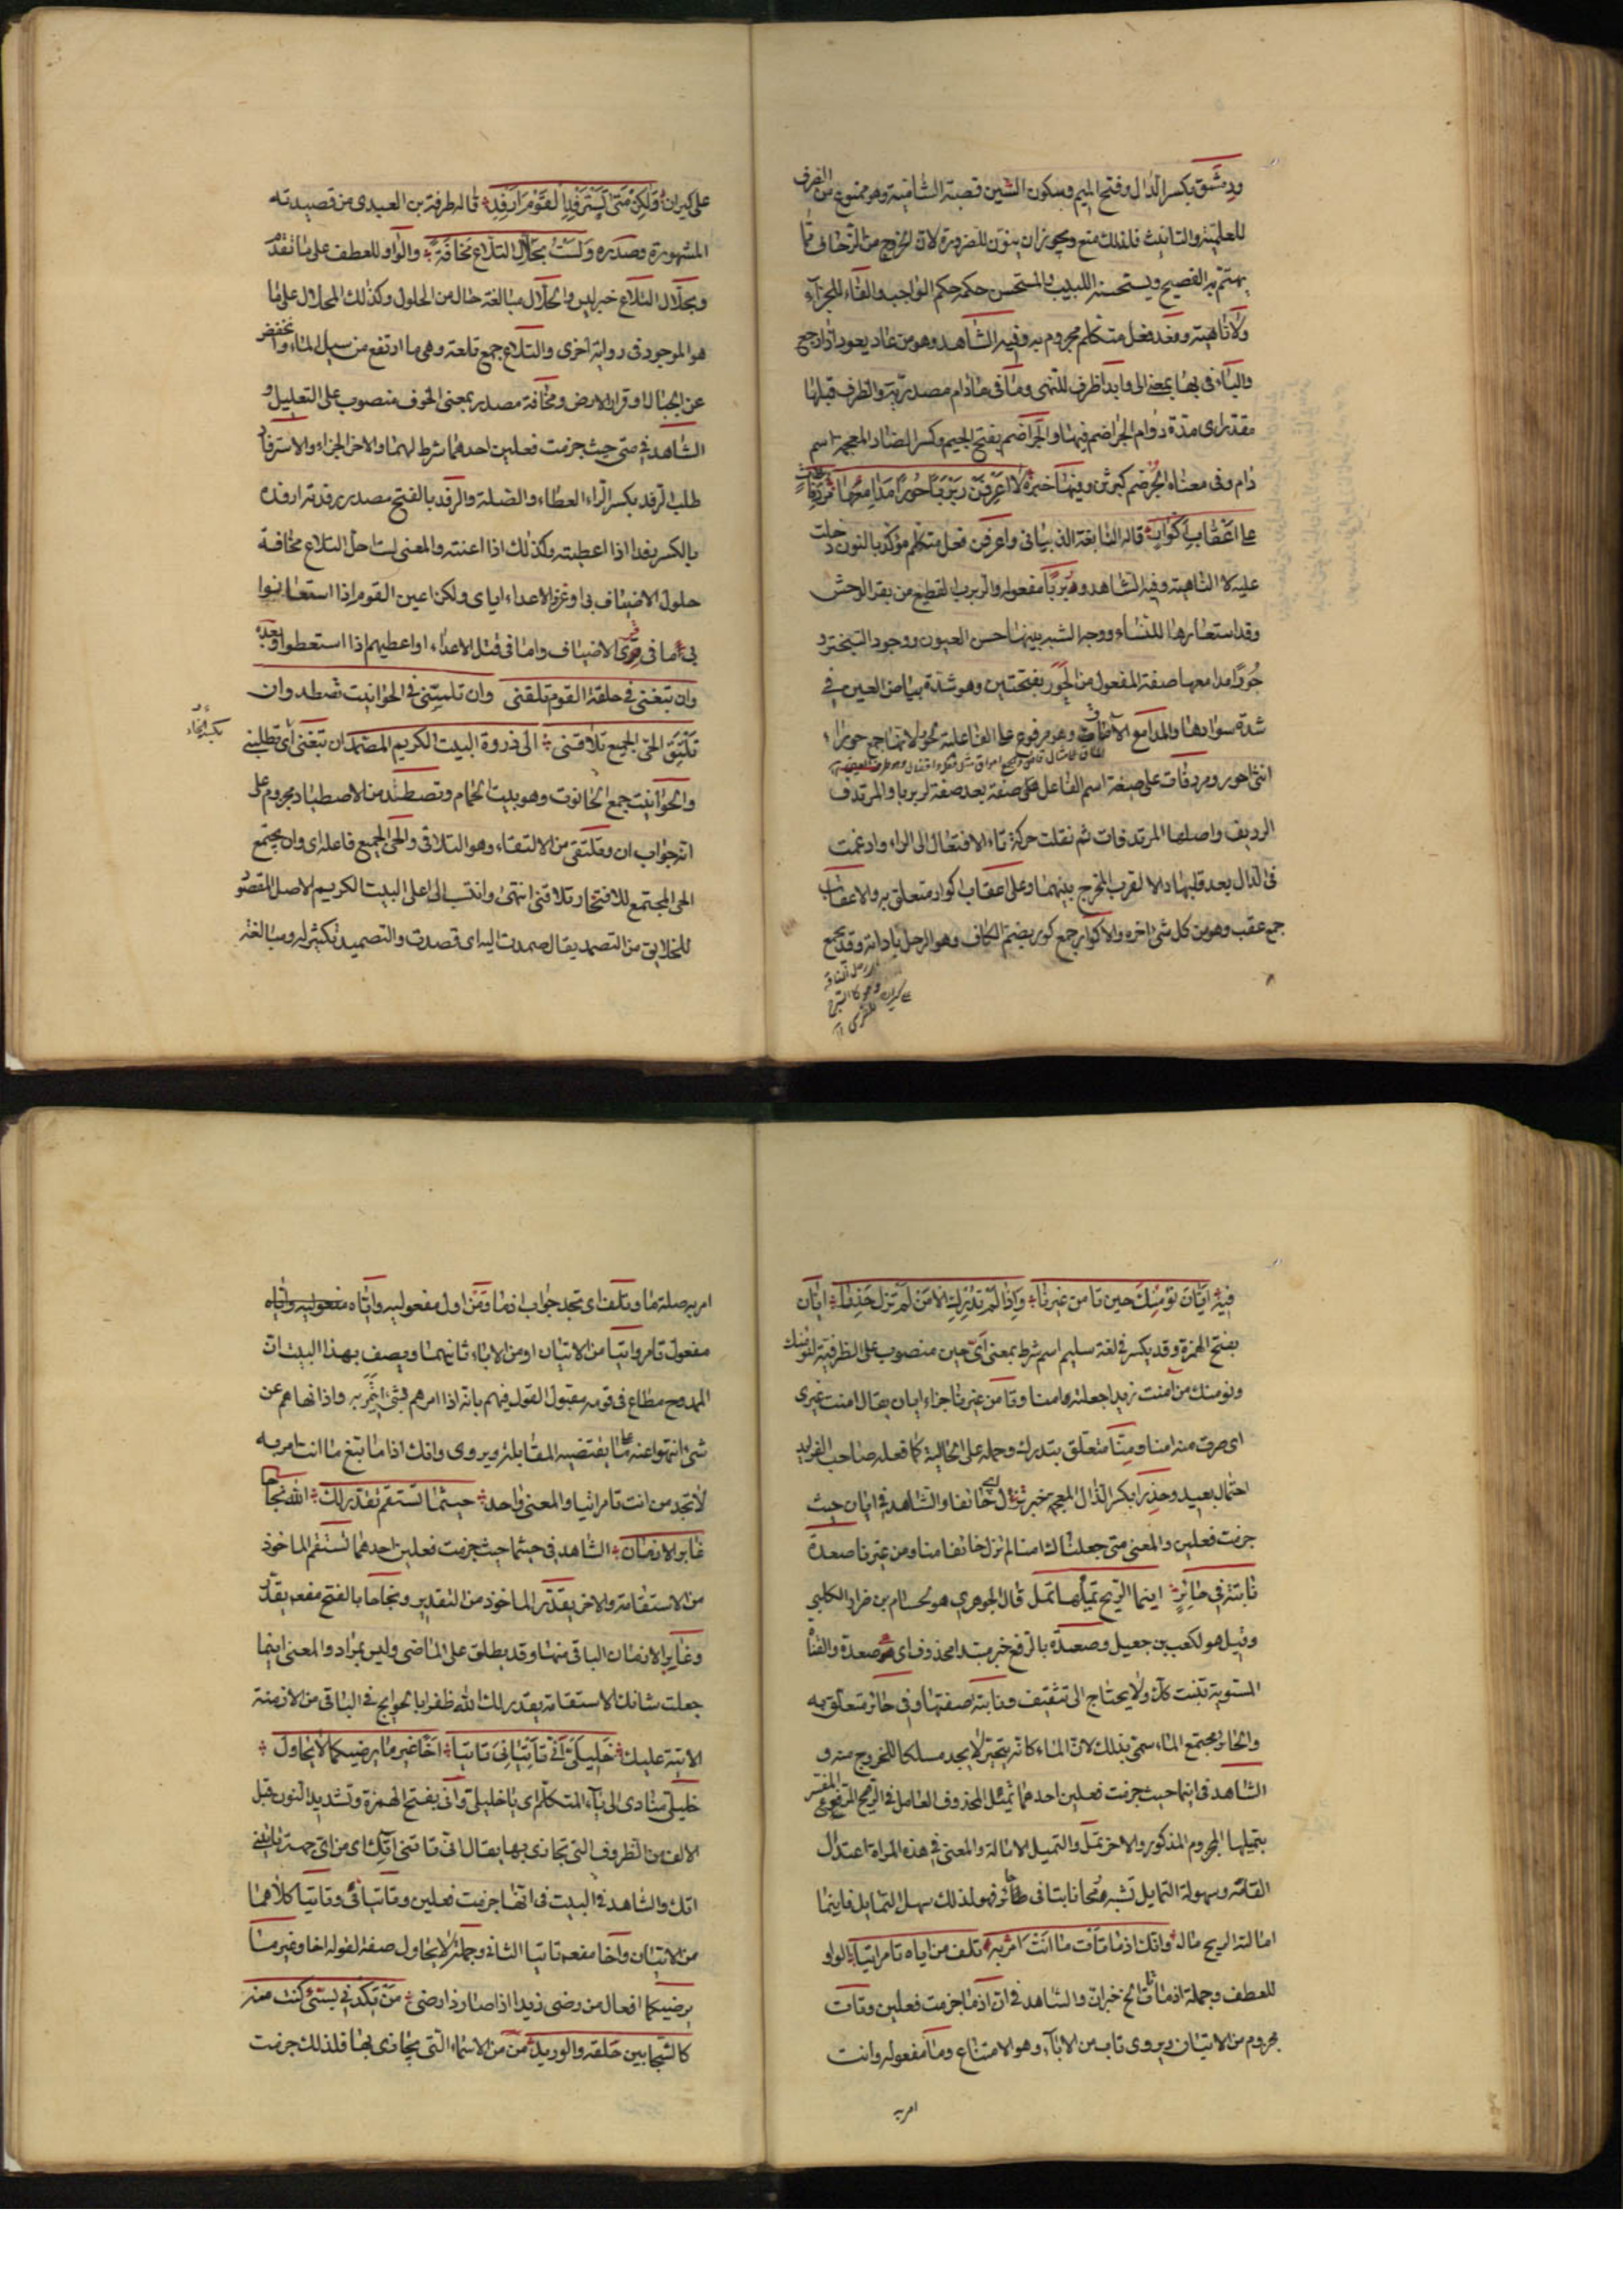 ودمشق بكسر الدال وفتح الميم وسكون الشين قصبة الشامية وهو ممنوع من الصرف
للعلمية والتانيث فلذلك منع ويجوز ان ينون للضرورة لان الخروج من الزحاف مما
يهتم به الفصيح ويستحسنه اللبيب والمستحسن حكمه حكم الواجب والفاء للجزاء
ولا ناهية ونعد فعل متكلم مجزوم به وفيه الشاهد وهو من عاد يعود اذا رجع
والباء في بها بمعنى الى وابدا ظرف للنهي وما في مادام مصدرية والظرف قبلها
مقدر اى مدة دوام الجراضم فيها والجراضم بفتح الجيم وكسر الضاد المعجمة اسم
دام وفى معناه الجرضم كبرثن وفيها خبره لا اعرفن ربربا حورا مدامعها مردفات
على اعقاب اكوار قاله النابغة الذبيانى واعرفن فعل متكلم مؤكد بالنون دخلت
عليه لا الناهية وفيه الشاهد وربربا مفعوله والربرب القطيع من بقر الوحش
وقد استعارها للنساء ووجه الشبه بينهما حسن العيون ووجود التبختر و
حورا مدامعها صفة المفعول من الحور بفتحتين وهو شدة بياض العين في
شدة سوادها والمدامع وهو مرفوع على الفاعلية لحورا لانها جمع حوراء
انثى احور ومردفات على صيغة اسم الفاعل صفة بعد صفة لربربا والمرتدف
الرديف واصلها المرتدفات ثم نقلت حركة تاء الافتعال الى الراء وادغمت
فى الدال بعد قلبها دالا لقرب المخرج بينهما وعلى اعقاب اكوار متعلق به والاعقاب
جمع عقب وهو من كل شئ اخره والاكوار جمع كور بضم الكاف وهو الرحل باداته وقد يجمع
على كيران ولكن متى يسترفد القوم ارفد قاله طرفة بن العبدى من قصيدته
المشهورة وصدره ولست بحلال التلاع مخافة والواو للعطف على ما تقدم
وبحلال التلاع خبر ليس والحلال مبالغة حال من الحلول وكذلك المحلال على ما
هو الموجود فى رواية اخرى والتلاع جمع تلعة وهى ما ارتفع من سيل الماء وانخفض
عن الجبال او قرار الارض ومخافة مصدر بمعنى الخوف منصوب على التعليل و
الشاهد في متى حيث جزمت فعلين احدهما شرط لهما والاخر الجزاء والاسترفاد
طلب الرفد بكسر الراء العطاء والصلة والرفد بالفتح مصدر رفدته ارفده
بالكسر رفدا اذا اعطيته وكذلك اذا اعنته والمعنى لست احل التلاع مخافة
حلول الاضياف بى او غزو الاعداء اياى ولكن اعين القوم اذا استعانوا
بى اما فى قرى الاضياف واما فى قتل الاعداء او اعطيهم اذا استعطوا وبعده
وان تبغنى في حلقة القوم تلقنى وان تلتمسنى في الحوانيت تصطد وان
تلتق الحى الجميع تلاقنى الى ذروة البيت الكريم المصمد ان تبغنى اى تطلبنى
والحوانيت جمع الحانوت وهو بيت الخمار وتصطد من الاصطياد مجزوم على
انه جواب ان وتلتقى من الالتقاء وهو التلاقى والحى الجميع فاعله اى وان يجتمع
الحى المجتمع للافتخار تلاقنى انتمى وانتسب الى اعلى البيت الكريم الاصل المقصود
للخلايق من التصميد يقال صمدت اليه اى قصدت والتصميد تكثير له ومبالغة
فيه ايان نؤمنك حين تامن غيرنا واذا لم تدرك الامن لم تزل حذرا ايان
بفتح الهمزة وقد يكسر في لغة سليم اسم شرط بمعنى اى حين منصوب على الظرفية لنؤمنك
ونؤمنك من آمنت زيدا جعلته امنا وتامن غيرنا جزاء ايان يقال امنت غيرى
اى صرت منه امنا ومنا متعلق بتدرك وحمله على الحالية كما فعله صاحب الفرايد
احتمال بعيد وحذرا بكسر الذال المعجمة خبر تزل اى خائفا والشاهد في ايان حيث
جزمت فعلين والمعنى متى جعلناك امنا لم تزل خائفا منا ومن غيرنا صعدة
نابتة في حائر اينما الريح تميلها تمل قال الجوهرى هو لحسام بن ضرار الكلبى
وقيل هو لكعب بن جعيل وصعدة بالرفع خبر مبتدا محذوف اى هى صعدة والقناة
المستوية تنبت كذلك ولا يحتاج الى تثقيف ونابتة صفتها وفى حائر متعلق به
والحائر مجتمع الماء سمى بذلك لان الماء كانه يتحير لا يجد مسلكا للخروج منه و
الشاهد فى اينما حيث جزمت فعلين احدهما تميل المحذوف العامل في الريح المرفوع المفسر
بتميلها المجزوم المذكور والاخر تمل والتميل الامالة والمعنى في هذه المراة اعتدال
القامة وسهولة التمايل تشبه رمحا نابتا فى حائر فهو لذلك سهل التمايل فاينما
امالته الريح مال وانك اذ ما تات ما انت امر به تلف من اياه تامر اتيا الواو
للعطف وجملة اذ ما تات الخ خبر ان والشاهد في ان اذ ما جزمت فعلين وتات
مجزوم من الاتيان ويروى تاب من الاباء وهو الامتناع وما مفعوله وانت
امر به
امر به صلة ما وتلف اى تجد جواب اذ ما ومن اول مفعوليه واياه
مفعول تامر واتيا من الاتيان او من الاباء ثانيهما ويصف بهذا البيت ان
الممدوح مطاع فى قومه مقبول القول فيهم بانه اذا امرهم بشئ ائتمر به واذا نهاهم عن
شئ انتهوا عنه على ما يقتضيه المقابلة ويروى وانك اذا ما تبتغ ما انت امر به
لا تجد من انت تامر اتيا والمعنى واحد حيثما تستقم يقدر لك الله نجاحا
في غابر الازمان الشاهد فى حيثما حيث جزمت فعلين احدهما تستقم الماخوذ
من الاستقامة والاخر يقدر الماخوذ من التقدير ونجاحا بالفتح مفعول يقدر
وغابر الازمان الباقى منها وقد يطلق على الماضى وليس بمراد والمعنى اينما
جعلت شانك الاستقامة يقدر لك الله ظفرا بالحوايج في الباقى من الازمنة
الاتية عليك خليلى انى تاتيانى تاتيا اخا غير ما يرضيكما لا يحاول
خليلى منادى الى ياء المتكلم اى يا خليلى وانى بفتح الهمزة وتشديد النون قبل
الالف من الظروف التى تجازى بها يقال انى تاتنى آتك اى من اى جهة تاتنى
اتك والشاهد في البيت فى انها جزمت فعلين وتاتيانى وتاتيا كلاهما
من الاتيان واخا مفعول تاتيا الثانى وجملة لا يحاول صفة لقوله اخا وغير ما
يرضيكما افعال من رضى زيد اذا صار ذا رضى من يكدنى بسئ كنت منه
كالشجا بين حلقه والوريد من من الاسماء التى يجازى بها فلذلك جزمت